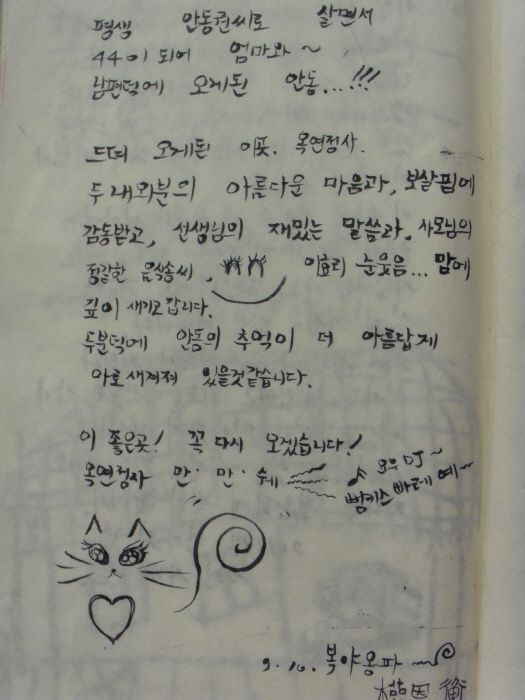 평생 안동권씨로 살면서
44이 되어 엄마와 ~
남편덕에 오게된 안동...!!!
드뎌 오게된 이곳. 옥연정사.
두 내외분의 아름다운 마음과, 보살핌에
감동받고, 선생님의 재밌는 말씀과, 사모님의
정갈한 음식솜씨, 이효리 눈웃음... 맘에
깊이 새기고갑니다.
두분덕에 안동의 추억이 더 아름답게
아로새겨져 있을것같습니다.
이 좋은곳! 꼭 다시 오겠습니다!
옥연정사 만·만·쉐
DJ~
빰키스 빠레 예~
9.16.